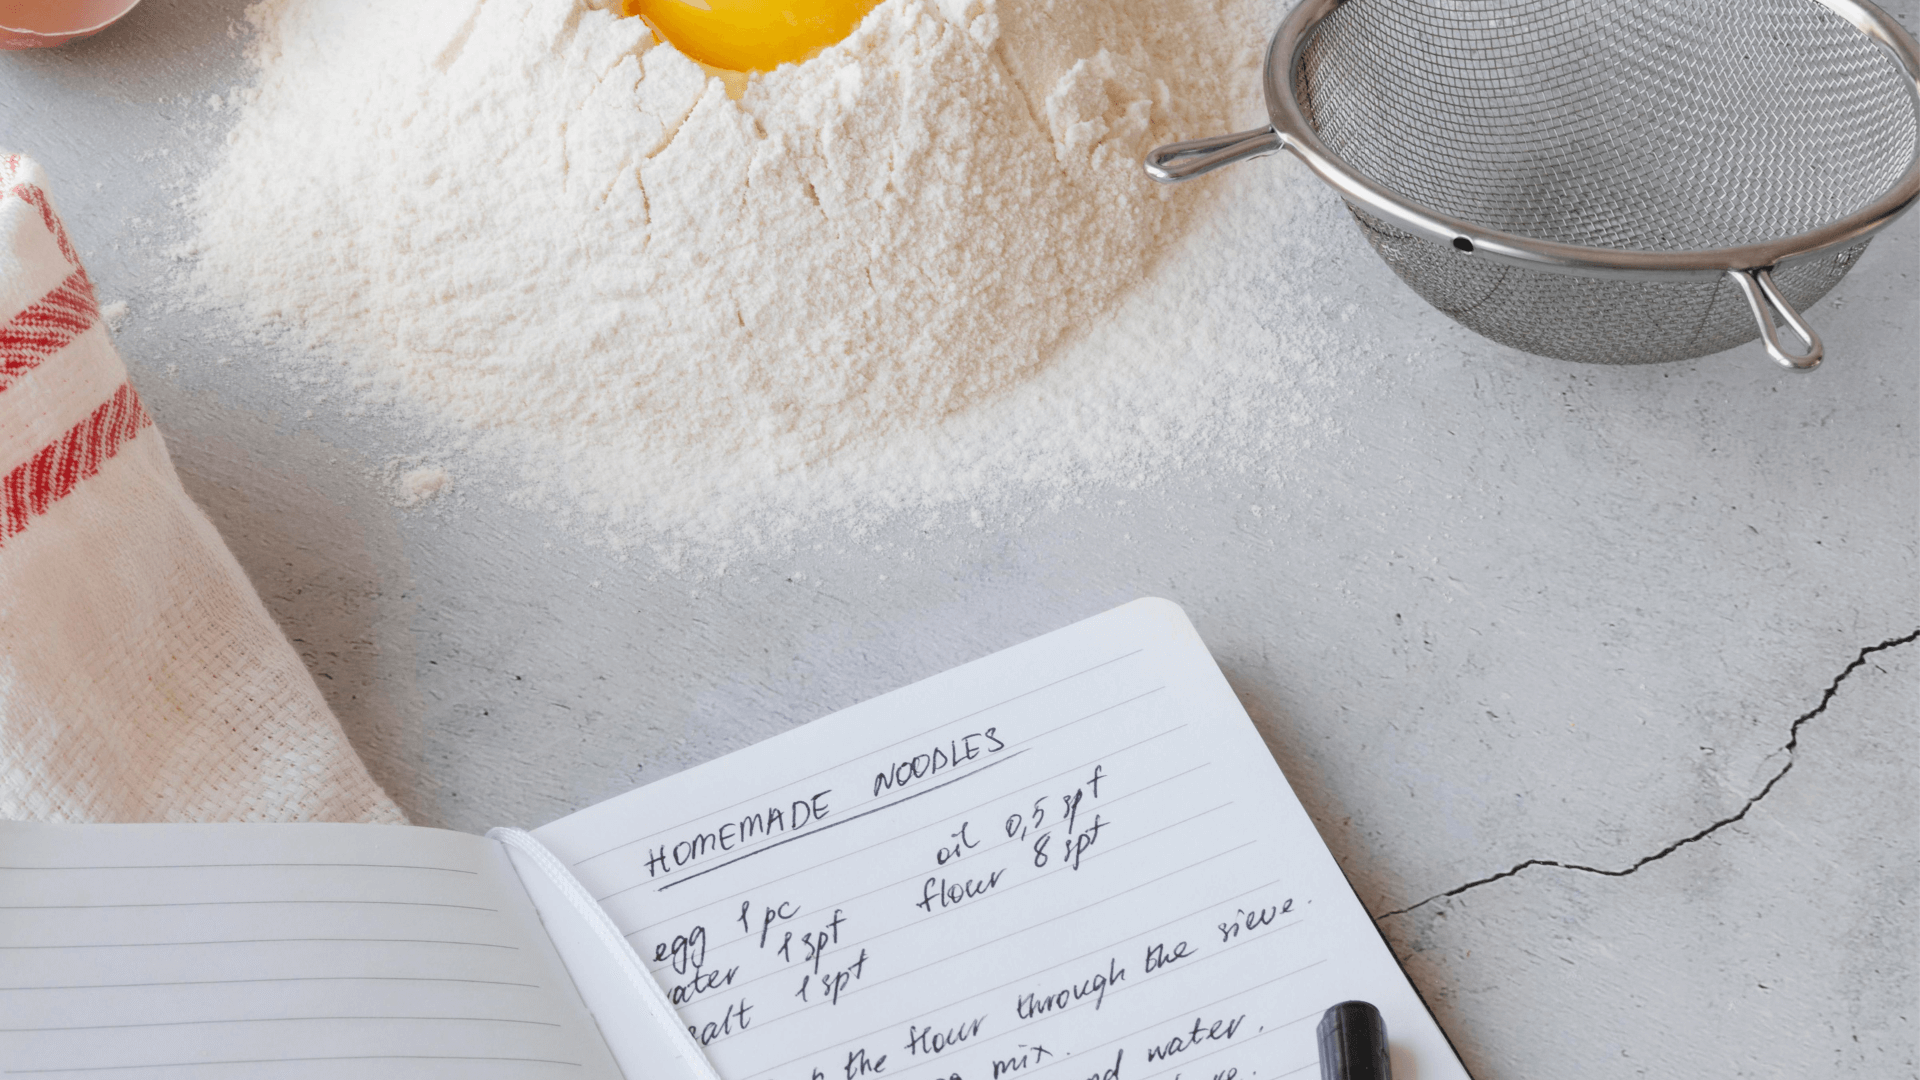 HOMEMADE NOODLES
egg 1 pc
oil 0,5 spt
ater 1 spt
flour 8 spt
alt 1 spt
the flour through the sieve.
mix.
nd water.